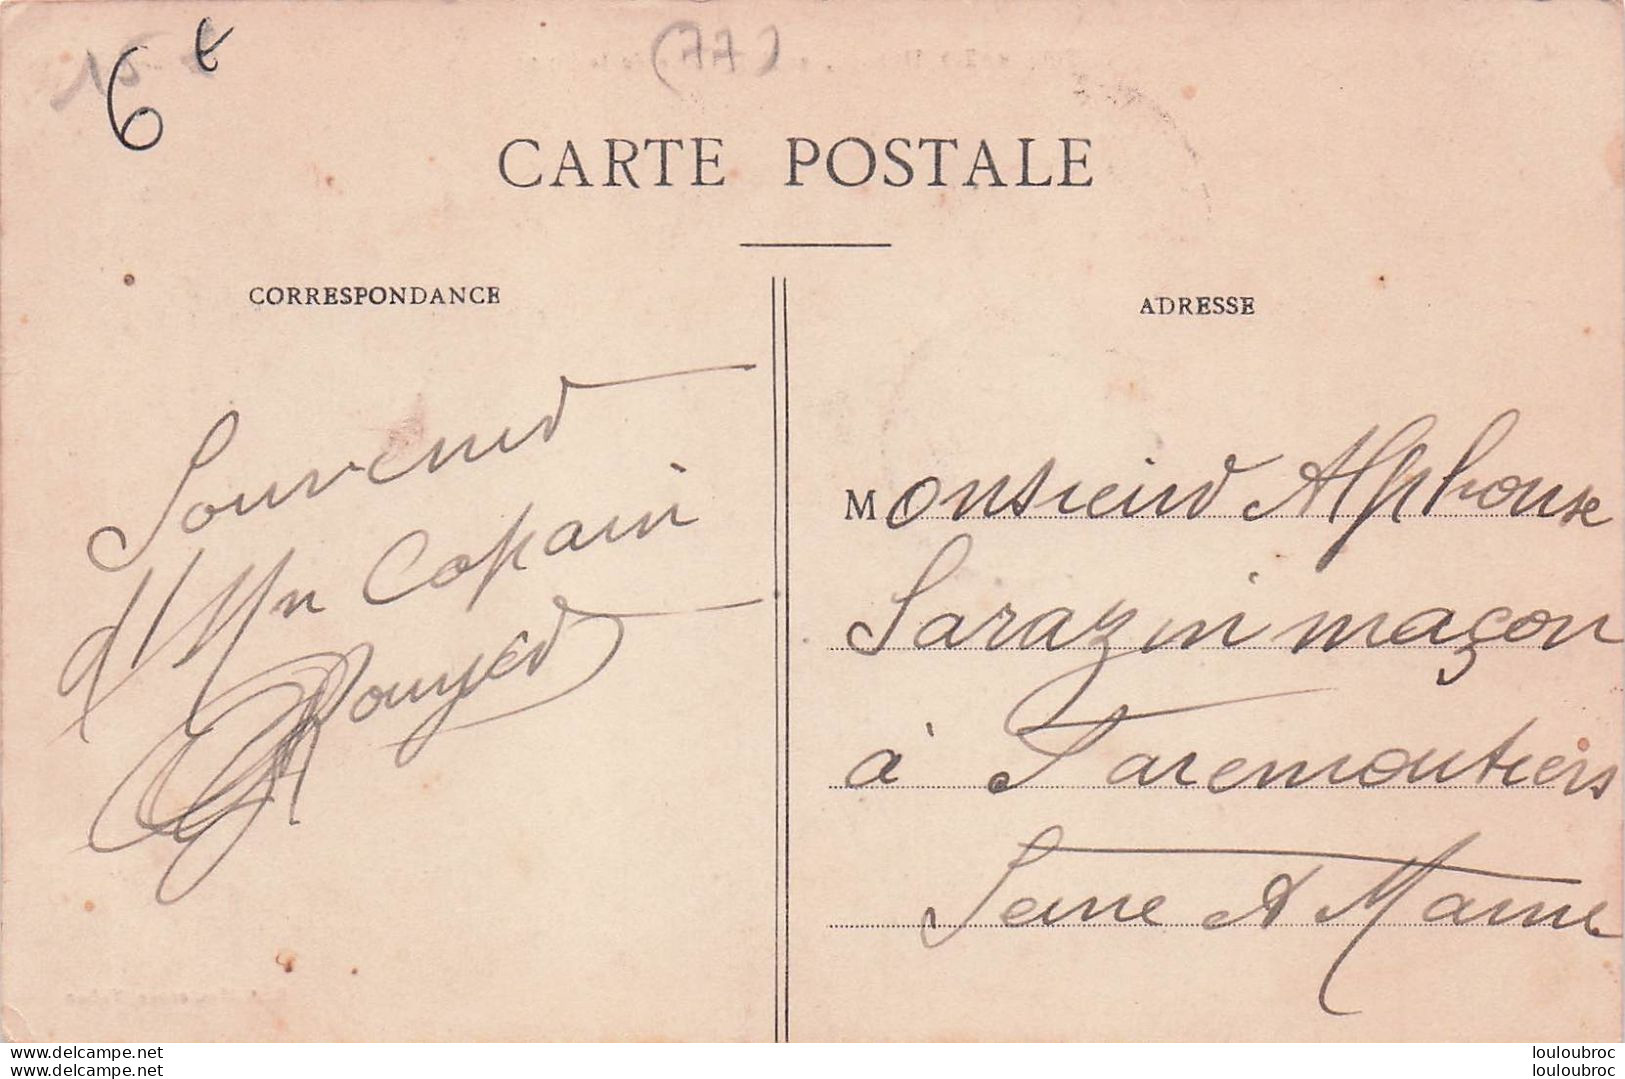 6 t
(77)
CARTE POSTALE
CORRESPONDANCE
Souvenir
d'un Copain
Rouyer
ADRESSE
Monsieur Alphonse
Sarazin maçon
à Faremoutiers
Seine et Marne
www.delcampe.net
www.delcampe.net
louloubroc
louloubroc